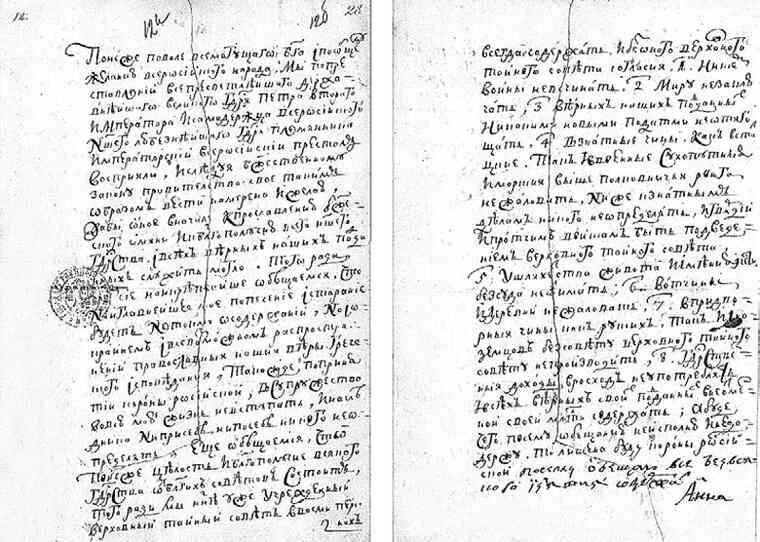 12.
12и
12б
28
Понеже поволе всемогущаго бга і пообще
желанию всероссійского народа, мы попре
ставлениі всепресветлеишаго держа
внѣишаго великого гдря Петра второго
императора и самодержца всероссійского
ншего любезнѣишаго гдря племянника
императорскиі всероссійскиі престолъ
восприяли, и слѣдуя бжественному
закону правителство свое такимъ
образомъ вести намерена и желаю,
дабы оное вначале кпрославлению бже
ского имяни и кблагополучию всего ншего
гдрства, і всѣхъ вѣрныхъ нашихъ подда
нныхъ служить могло. Того ради
чрезъ сие наикрѣпчайше обещаемся, что
наиглавнейшее мое попечение і старание
будетъ не токмо о содержаниі, но і о
крайнемъ і всевозможномъ распростра
нениі православныя нашея вѣры грече
ского исповѣдания, такожде, попринятиі
короны росиской, в супружество
во всю мою жизнь не вступать, и наследника
ни при себе, ни по себе никого не опре
делять, Еще обещаемся, что
понеже целость и благополучие всякого
гдрства от благихъ советовъ состоитъ,
того ради мы ннѣ уже учрежденныі
верховныі таіныі советъ в восми пер
сонахъ
всегда содержать, и безоного верховного
таіного совѣта согласия. 1. Ни скемъ
воины невсчинать. 2 Миру незаклю
чать, 3 Вѣрныхъ нашихъ подданныхъ
никакими новыми податми неотяго
щать. 4. В знатные чины, какъ встацкие, такъ ивоенные сухопутные
и морские выше полковничья ранга
нежаловать, ниже кзнатнымъ
дѣламъ никого неопределять, и гвардиі
и протчимъ воискамъ быть подведе
ниемъ верховного таіного совѣта,
5. У шляхетства живота и имѣния и чести
безсуда неотимать, 6. Вотчины
и деревни нежаловать, 7. Впридво
рные чины какъ рускихъ, такъ ино
земцовъ безсовѣту верховного таіного
совѣту непроизводить, 8. Гдрствен
ныя доходы врасходъ неупотреблять
и всѣхъ вѣрныхъ своихъ поданныхъ внеотме
нной своей млсти содержать; А буде
чего посему обещанию неисполню и недо
держу, то лишена буду короны росиі
ской посему обещаю все безвся
кого изъятия содержать
Анна